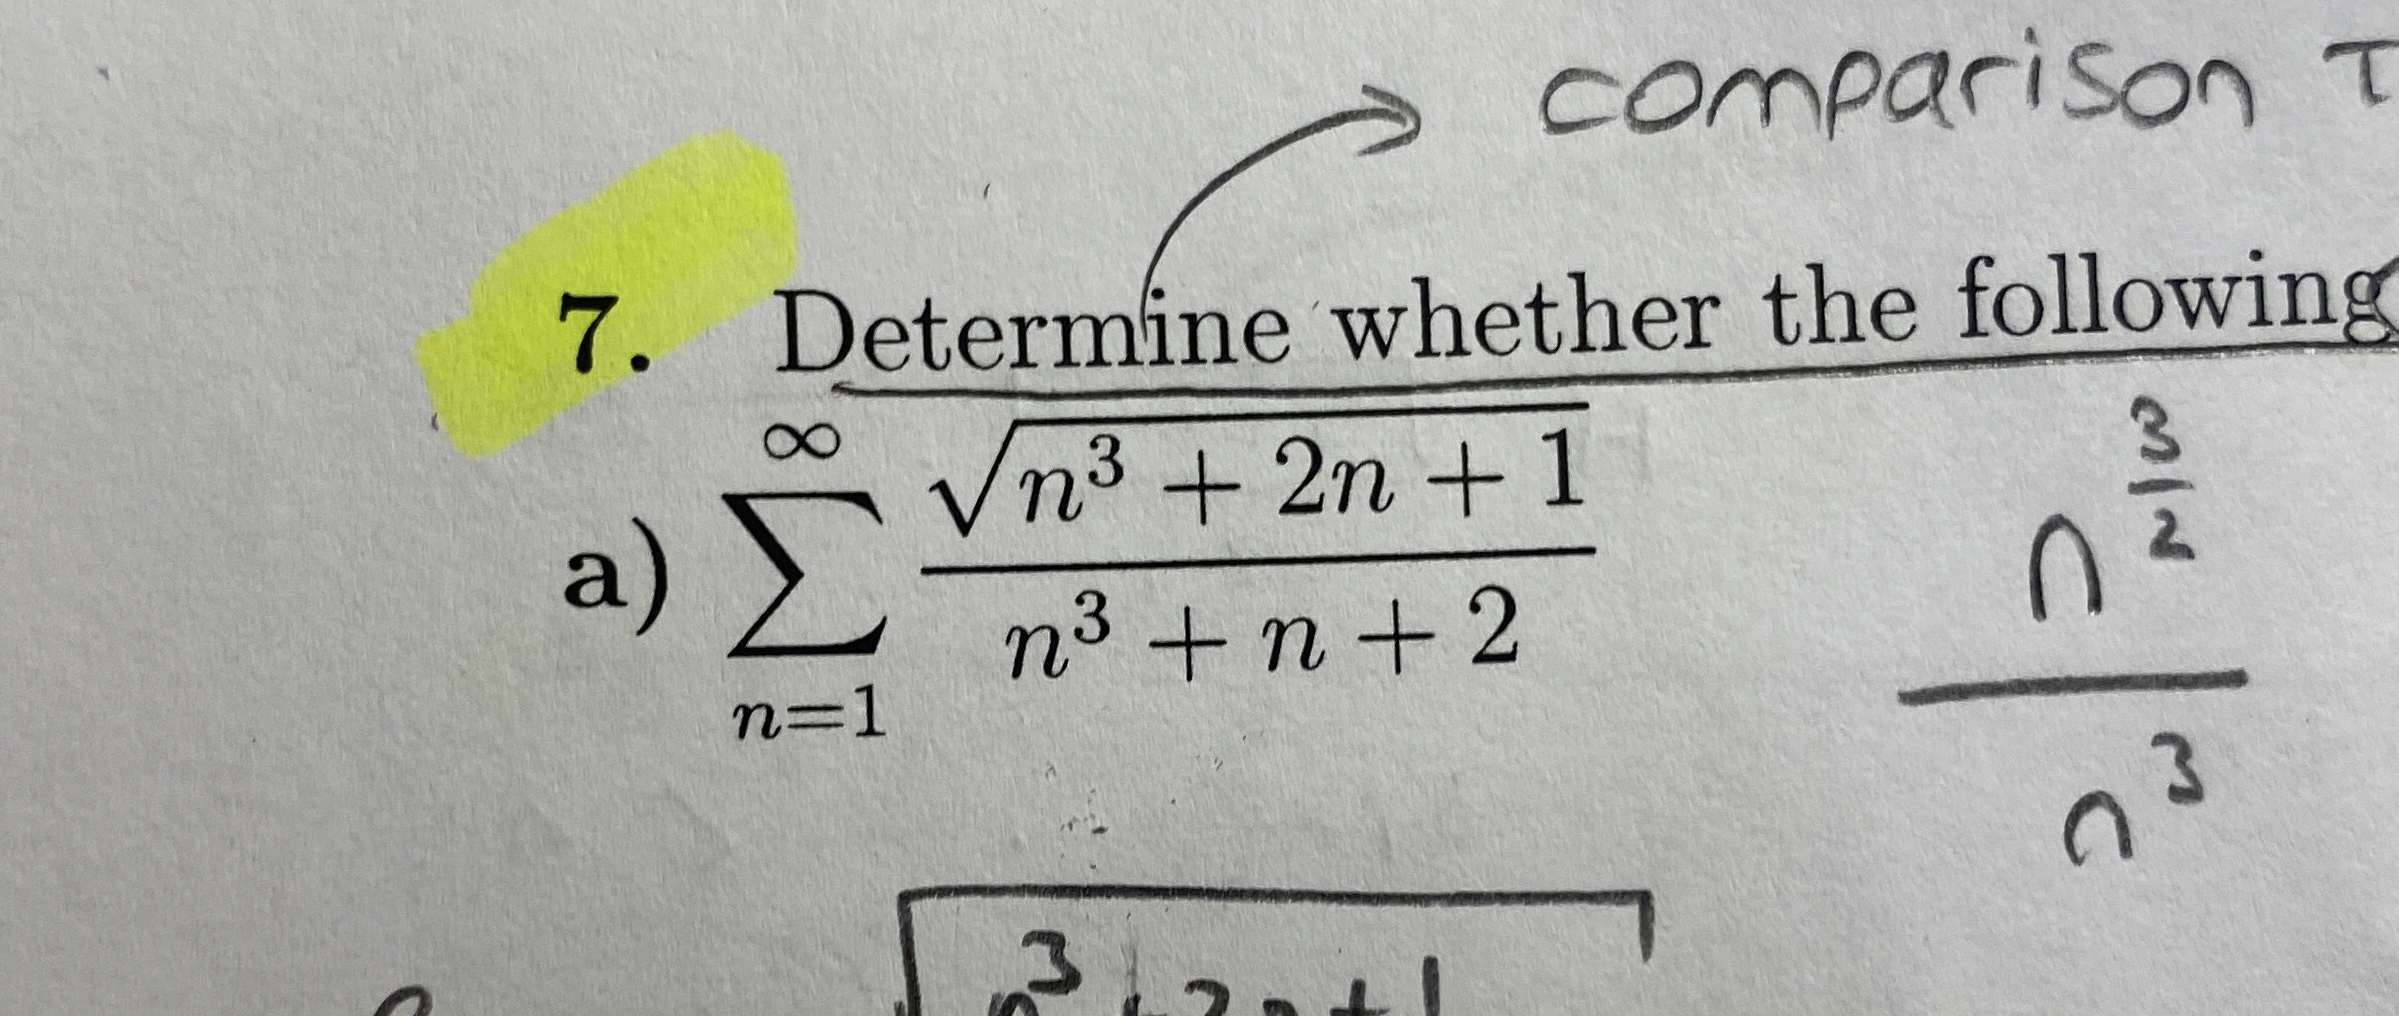 comparison T
7. Determine whether the following
a) ∞ ∑ n=1 √(n³ + 2n + 1) / (n³ + n + 2)
n^(3/2) / n³
n³ + 2n + 1